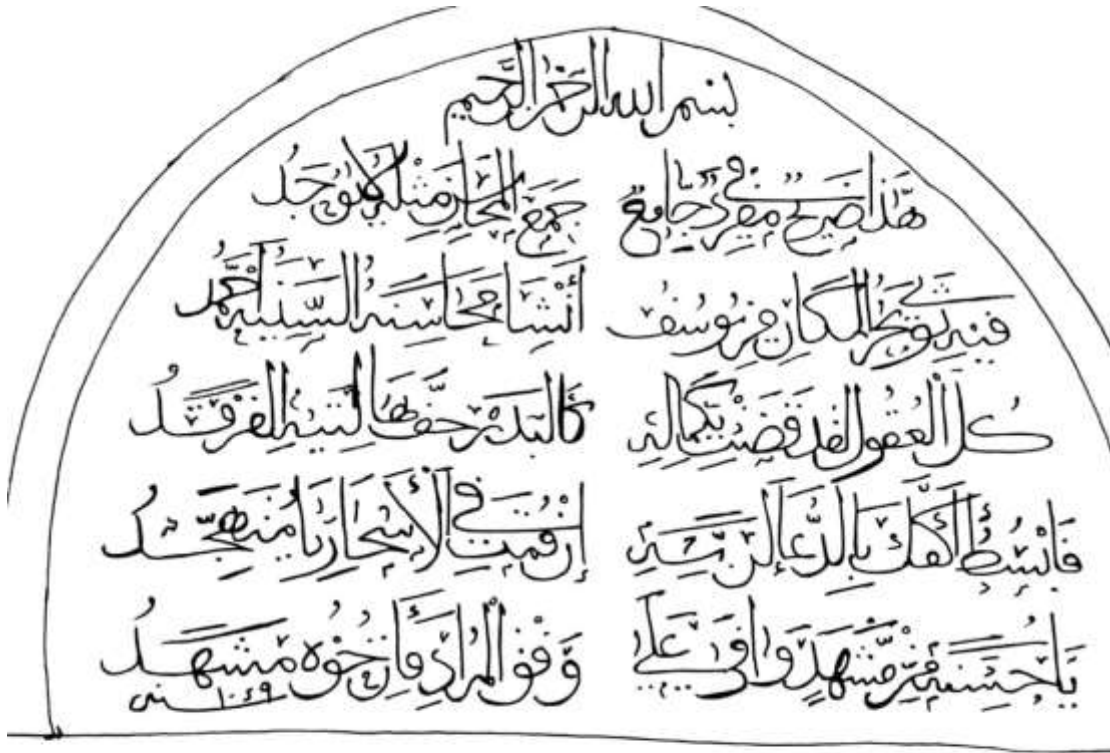 بسم الله الرحمن الرحيم
هذا ضريح مفرد جامع جمع المحاسن مثله لا يوجد
فيه يوسف أنشا محاسنه السيد أحمد
كل العقول لقد قضت بكماله كالبدر حف الفرقد
فابسط أكفك بالدعا إن قمت في الأسحار يا متهجد
يا حسنه من مشهد وافى على وفق المراد فأرخوه مشهد
سنة ١٠٤٩